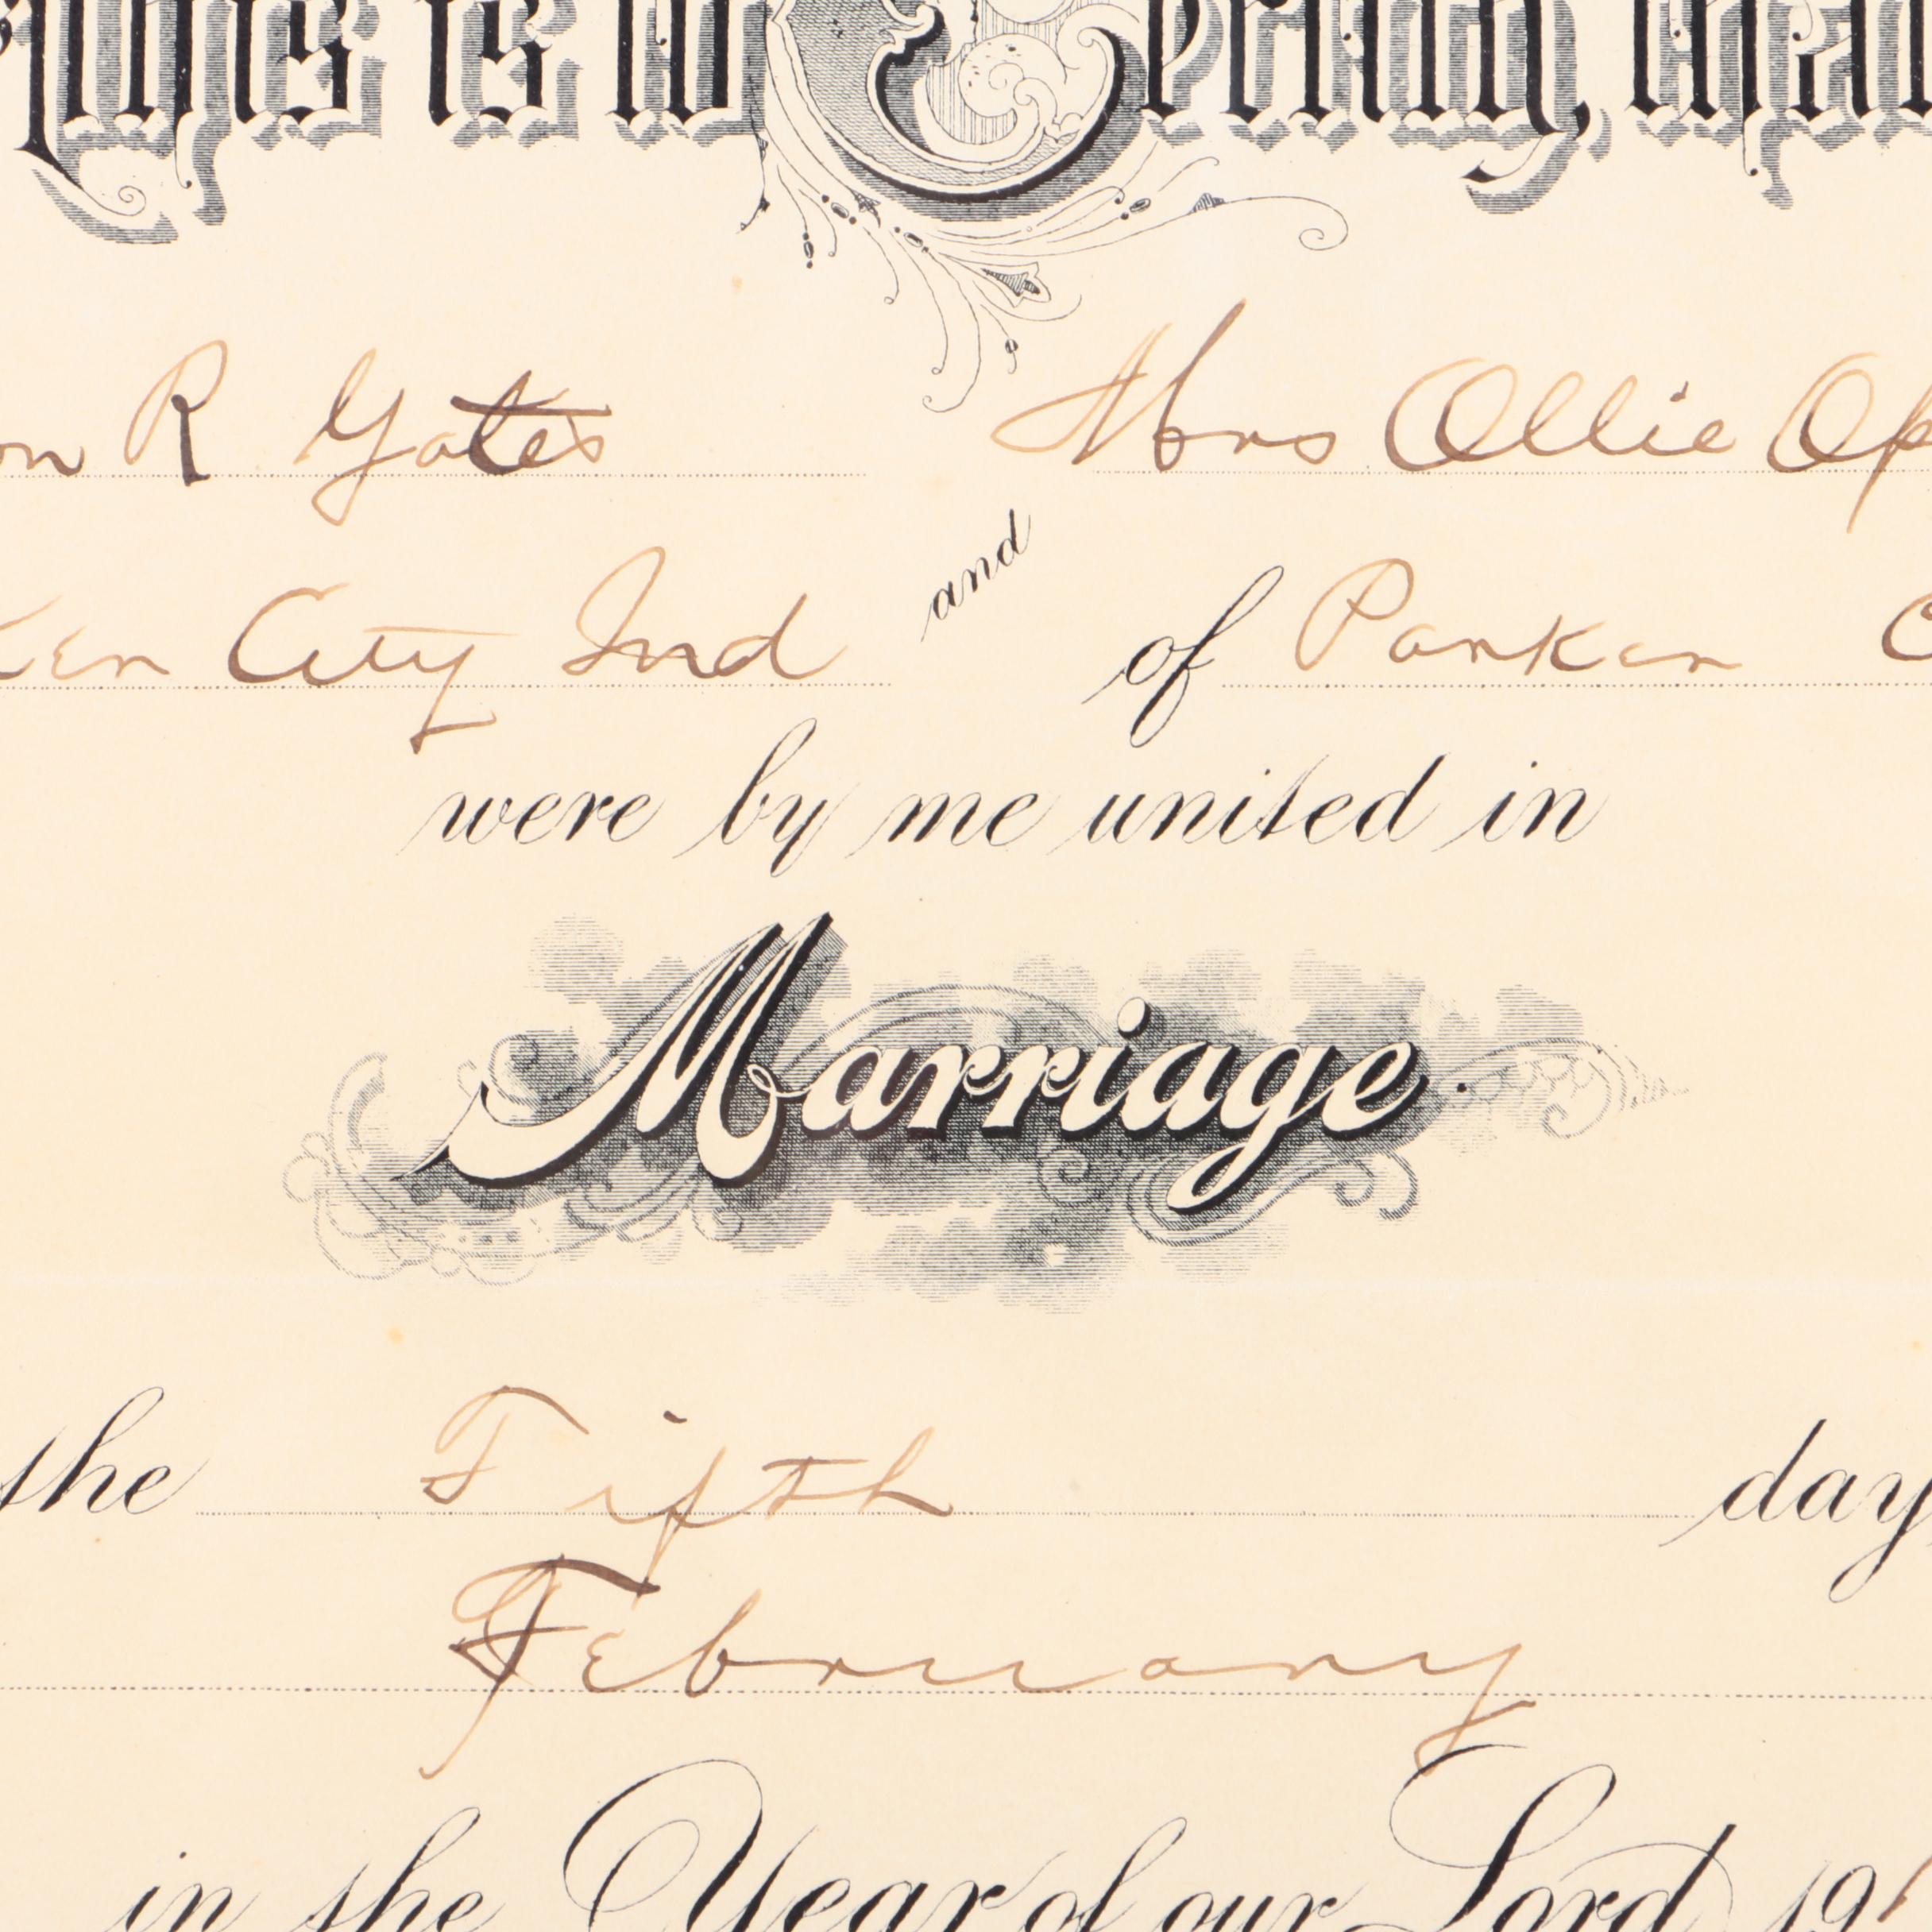 This is to Certify, that
on R Yates Mrs Ollie Op
and
ken City Ind of Parker C
were by me united in
Marriage.
the Fifth day
February
in the Year of our Lord 191